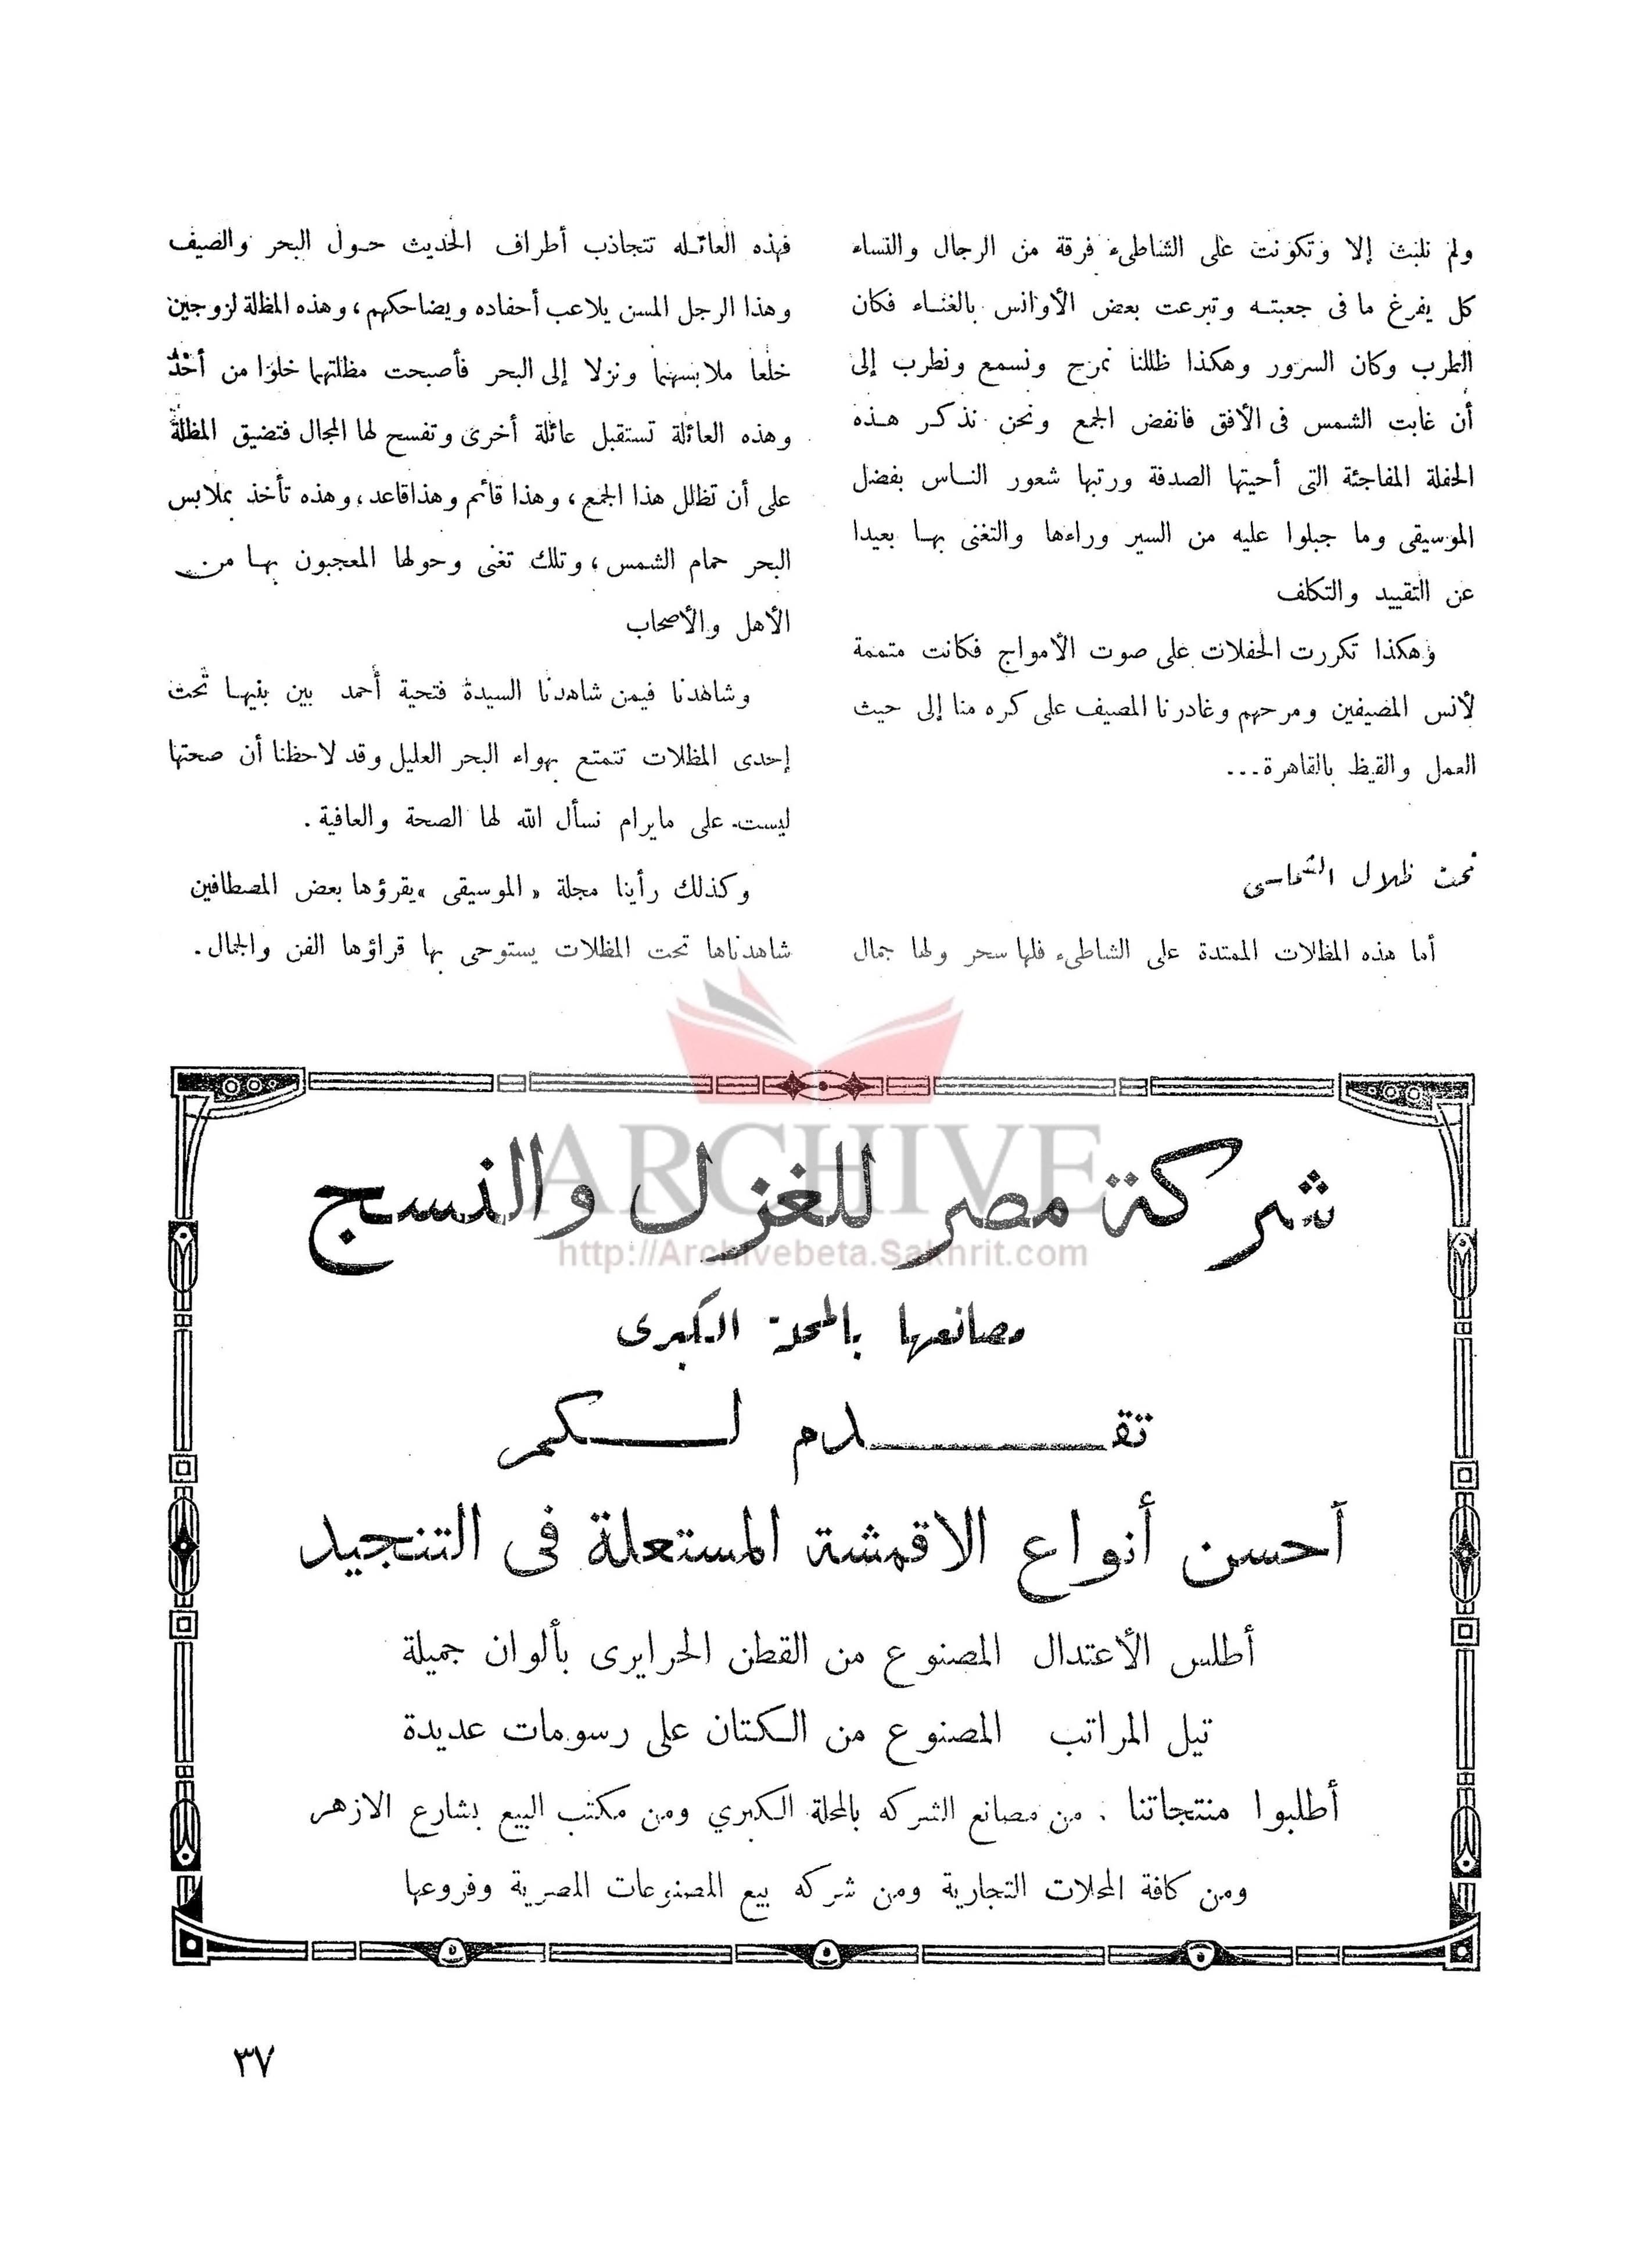 ولم نلبث إلا وتكونت على الشاطىء فرقة من الرجال والنساء
كل يفرغ ما فى جعبته وتبرعت بعض الأوانس بالغناء فكان
الطرب وكان السرور وهكذا ظللنا نمرح ونسمع ونطرب إلى
أن غابت الشمس فى الأفق فانفض الجمع ونحن نذكر هذه
الحفلة المفاجئة التى أحيتها الصدفة ورتبها شعور الناس بفضل
الموسيقى وما جبلوا عليه من السير وراءها والتغنى بها بعيدا
عن التقييد والتكلف
وهكذا تكررت الحفلات على صوت الأمواج فكانت متممة
لأنس المصيفين ومرحهم وغادرنا المصيف على كره منا إلى حيث
العمل والقيظ بالقاهرة...
تحت ظلال الشماسى
أما هذه المظلات الممتدة على الشاطىء فلها سحر ولها جمال
فهذه العائله تتجاذب أطراف الحديث حول البحر والصيف
وهذا الرجل المسن يلاعب أحفاده ويضاحكهم، وهذه المظلة لزوجين
خلعا ملابسهما ونزلا إلى البحر فأصبحت مظلتهما خلوا من أحد
وهذه العائلة تستقبل عائلة أخرى وتفسح لها المجال فتضيق المظلة
على أن تظلل هذا الجمع، وهذا قائم وهذا قاعد، وهذه تأخذ بملابس
البحر حمام الشمس، وتلك تغنى وحولها المعجبون بها من
الأهل والأصحاب
وشاهدنا فيمن شاهدنا السيدة فتحية أحمد بين بنيها تحت
إحدى المظلات تتمتع بهواء البحر العليل وقد لاحظنا أن صحتها
ليست على مايرام نسأل الله لها الصحة والعافية.
وكذلك رأينا مجلة «الموسيقى» يقرؤها بعض المصطافين
شاهدناها تحت المظلات يستوحى بها قراؤها الفن والجمال.
ARCHIVE
http://Archivebeta.Sakhrit.com
شركة مصر للغزل والنسج
مصانعها بالمحلة الكبرى
تقدم لكم
أحسن أنواع الاقمشة المستعلة فى التنجيد
أطلس الأعتدال المصنوع من القطن الحرايرى بألوان جميلة
تيل المراتب المصنوع من الكتان على رسومات عديدة
أطلبوا منتجاتنا : من مصانع الشركه بالمحلة الكبري ومن مكتب البيع بشارع الازهر
ومن كافة المحلات التجارية ومن شركه بيع المصنوعات المصرية وفروعها
٣٧